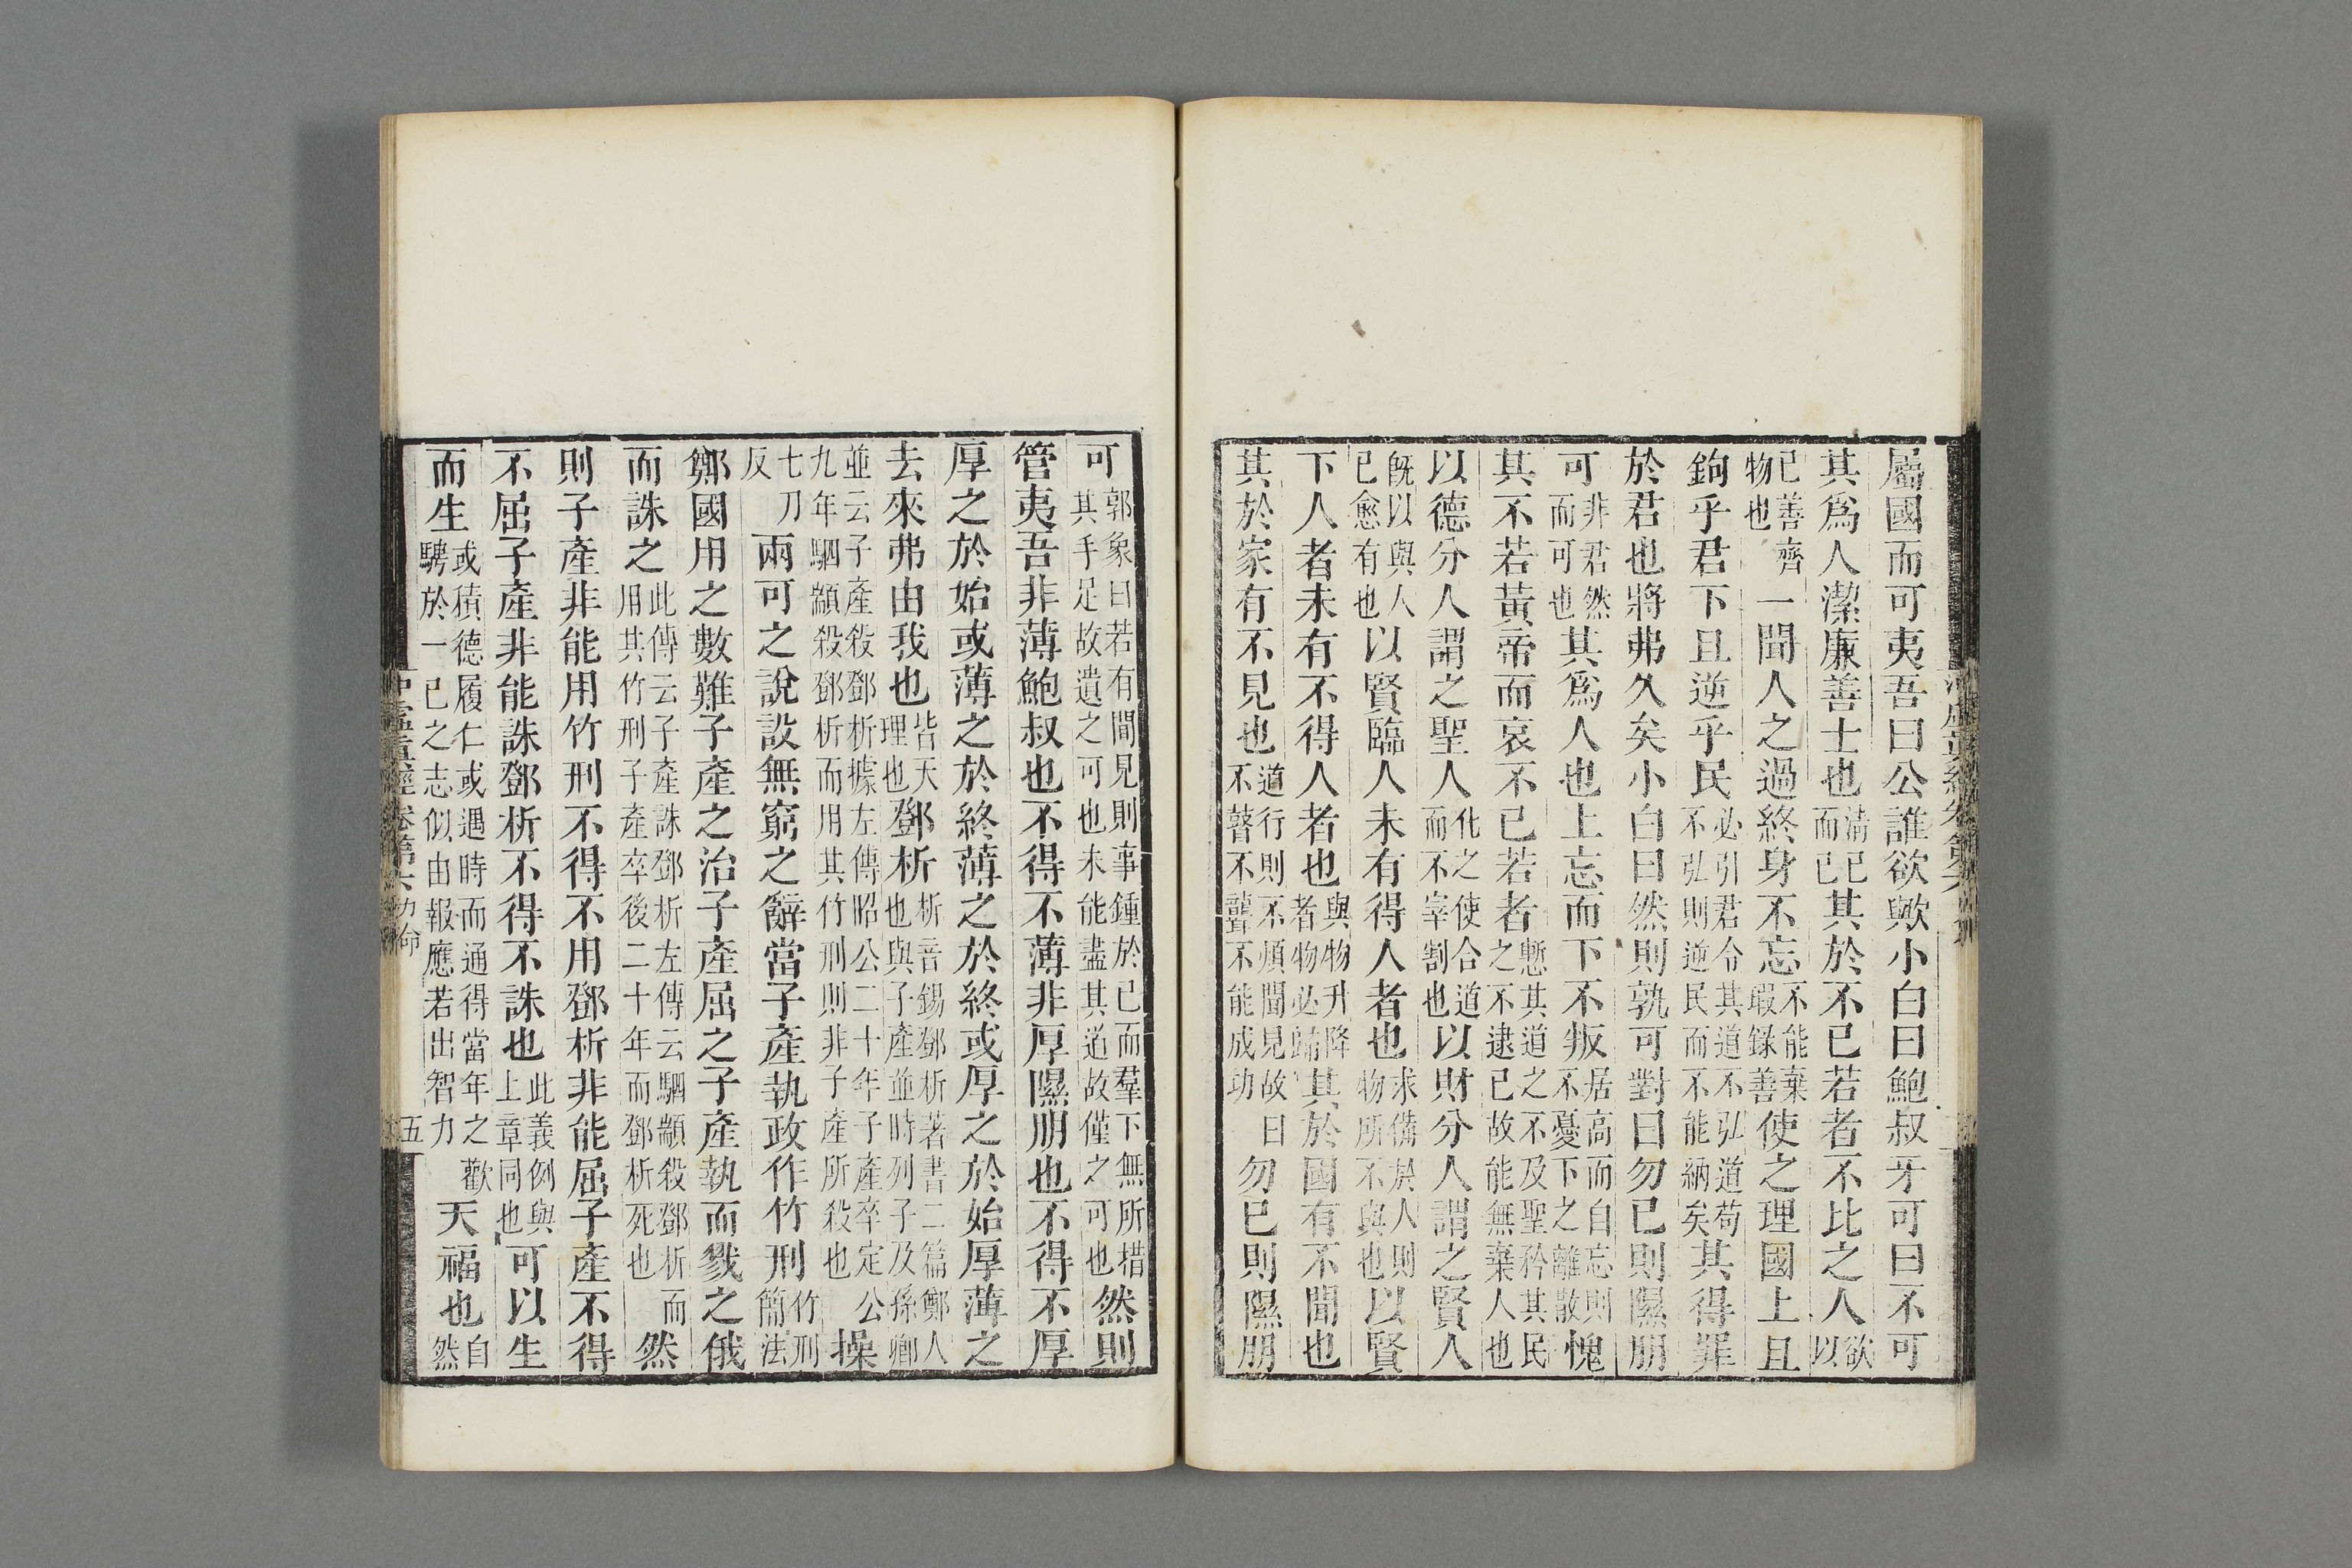 屬國而可夷吾曰公誰欲歟小白曰鮑叔牙可曰不可
其爲人潔廉善士也清己而已其於不已若者不比之人欲以
已善齊物也一聞人之過終身不忘不能棄瑕錄善使之理國上且
鉤乎君下且逆乎民必引君令其道不弘道苟不弘則逆民而不能納矣其得罪
於君也將弗久矣小白曰然則孰可對曰勿已則隰朋
可非君然而可也其爲人也上忘而下不叛居高而自忘則不憂下之離散愧
其不若黃帝而哀不已若者慙其道之不及聖矜其民之不逮已故能無棄人也
以德分人謂之聖人化之使合道而不宰割也以財分人謂之賢人
既以與人已愈有也以賢臨人未有得人者也求備於人則物所不與也以賢
下人者未有不得人者也與物升降者物必歸其於國有不聞也
其於家有不見也道行則不煩聞見故曰不瞽不聾不能成功勿已則隰朋
可郭象曰若有聞見則事鍾於已而羣下無所措其手足故遺之可也未能盡其道故僅之可也然則
管夷吾非薄鮑叔也不得不薄非厚隰朋也不得不厚
厚之於始或薄之於終薄之於終或厚之於始厚薄之
去來弗由我也皆天理也鄧析析音錫鄧析著書二篇鄭人也與子產並時列子及孫卿
並云子產殺鄧析據左傳昭公二十年子產卒定公九年駟顓殺鄧析而用其竹刑則非子產所殺也操
七刀反兩可之說設無窮之辭當子產執政作竹刑竹刑簡法
鄭國用之數難子產之治子產屈之子產執而戮之俄
而誅之此傳云子產誅鄧析左傳云駟顓殺鄧析而用其竹刑子產卒後二十年而鄧析死也然
則子產非能用竹刑不得不用鄧析非能屈子產不得
不屈子產非能誅鄧析不得不誅也此義例與上章同也可以生
而生或積德履仁或遇時而通得當年之歡騁於一已之志似由報應若出智力天福也自然
沖虛眞經卷第六 力命 五